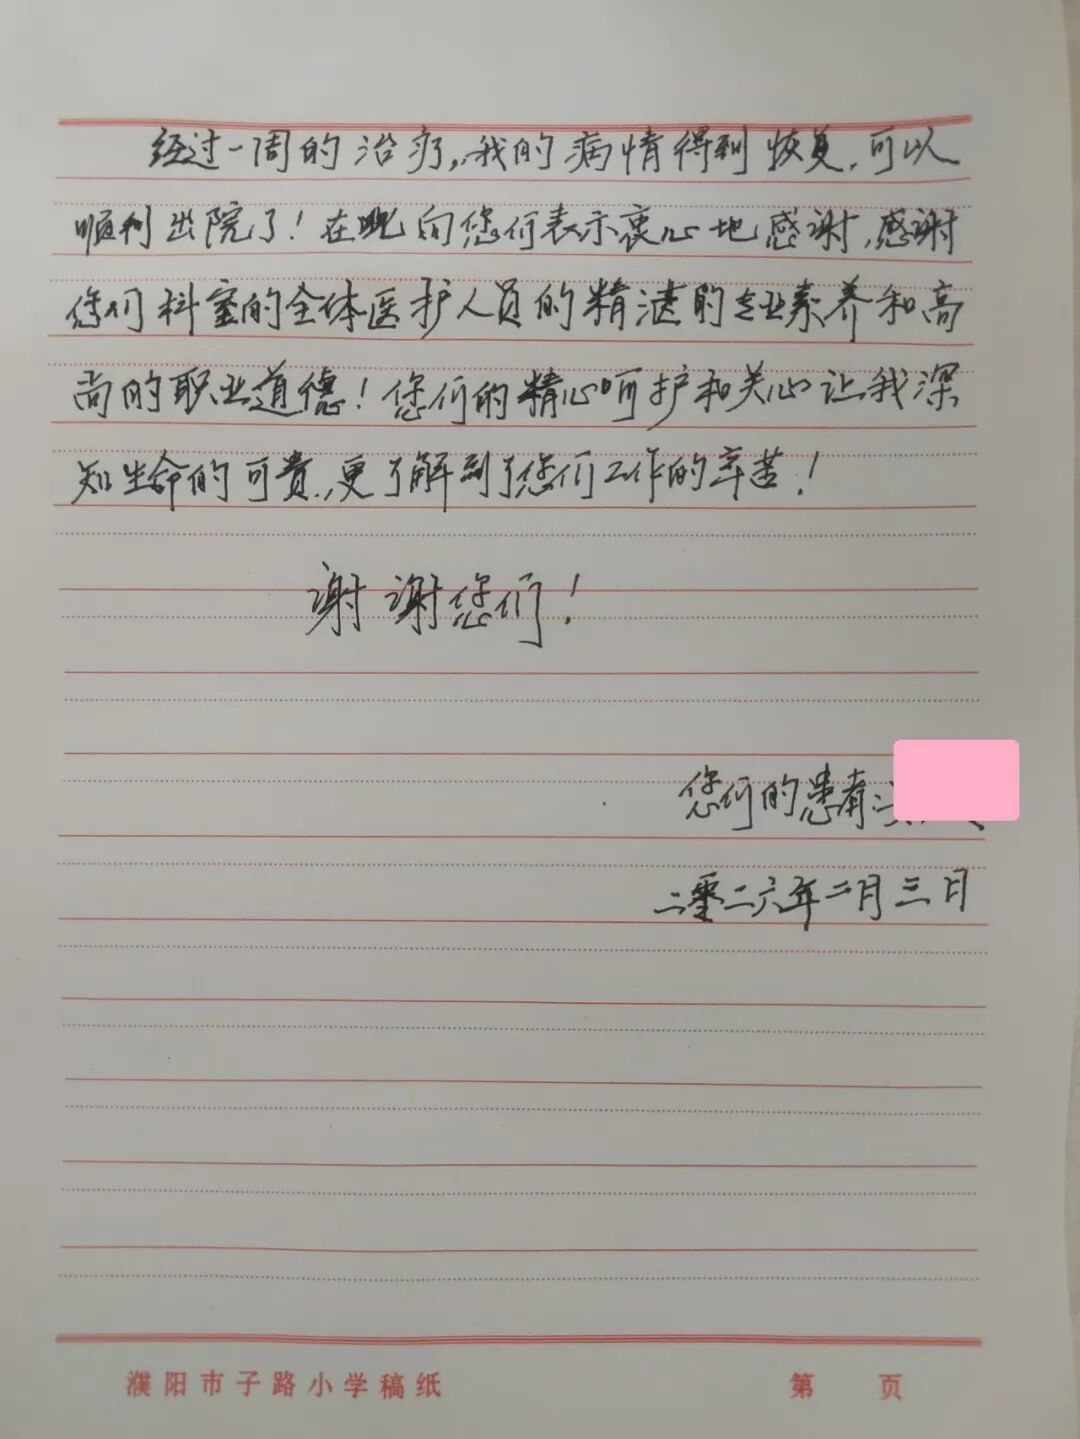 经过一周的治疗,我的病情得到恢复,可以
顺利出院了!在此向您们表示衷心地感谢,感谢
您们科室的全体医护人员的精湛的专业素养和高
尚的职业道德!您们的精心呵护和关心让我深
知生命的可贵,更了解到了您们工作的辛苦!
谢谢您们!
您们的患者:
二零二六年二月三日
濮阳市子路小学稿纸 第 页